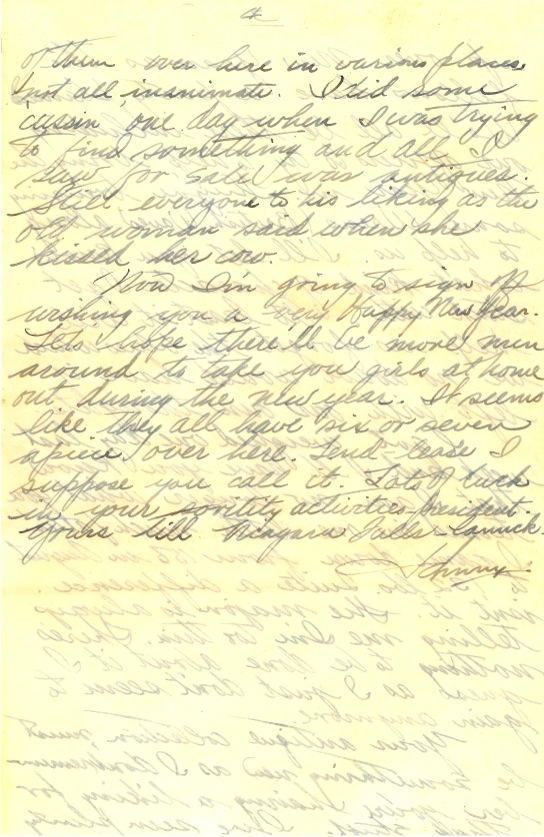 4
of them over here in various places
& not all inanimate. I did some
'cussin' one day when I was trying
to find something and all I
saw for sale was antiques.
Still everyone to his liking as the
old woman said when she
kissed her cow.
Now I'm going to sign off
wishing you a very Happy New Year.
Lets hope there'll be more men
around to take you girls at home
out during the new year. It seems
like they all have six or seven
apiece over here. Lend-lease I
suppose you call it. Lots O' luck
in your sovitity activities-president.
Yours till Niagara Falls-Canuck.
Johnny.